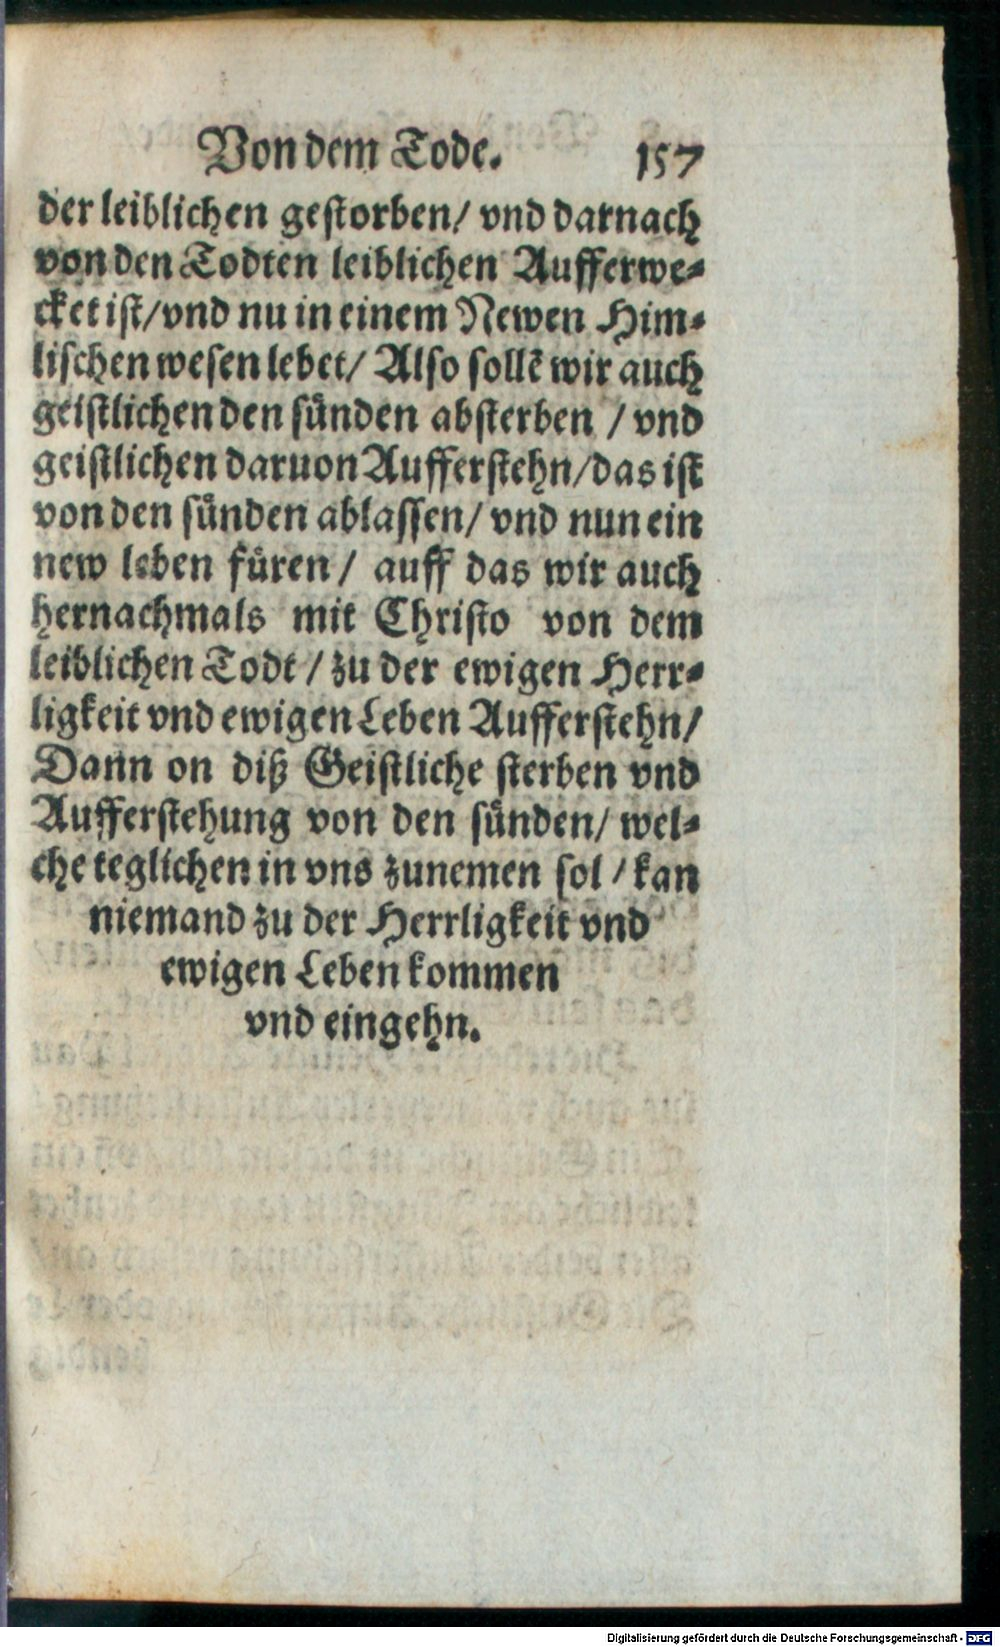 Von dem Tode. 157
der leiblichen gestorben/ vnd darnach
von den Todten leiblichen Aufferwe⸗
cket ist/vnd nu in einem Newen Him⸗
lischen wesen lebet/ Also sollẽ wir auch
geistlichen den sünden absterben / vnd
geistlichen daruon Aufferstehn/das ist
von den sünden ablassen/ vnd nun ein
new leben füren/ auff das wir auch
hernachmals mit Christo von dem
leiblichen Todt / zu der ewigen Herr⸗
ligkeit vnd ewigen Leben Aufferstehn/
Dann on diß Geistliche sterben vnd
Aufferstehung von den sünden/ wel⸗
che teglichen in vns zunemen sol / kan
niemand zu der Herrligkeit vnd
ewigen Leben kommen
vnd eingehn.
Digitalisierung gefördert durch die Deutsche Forschungsgemeinschaft - DFG